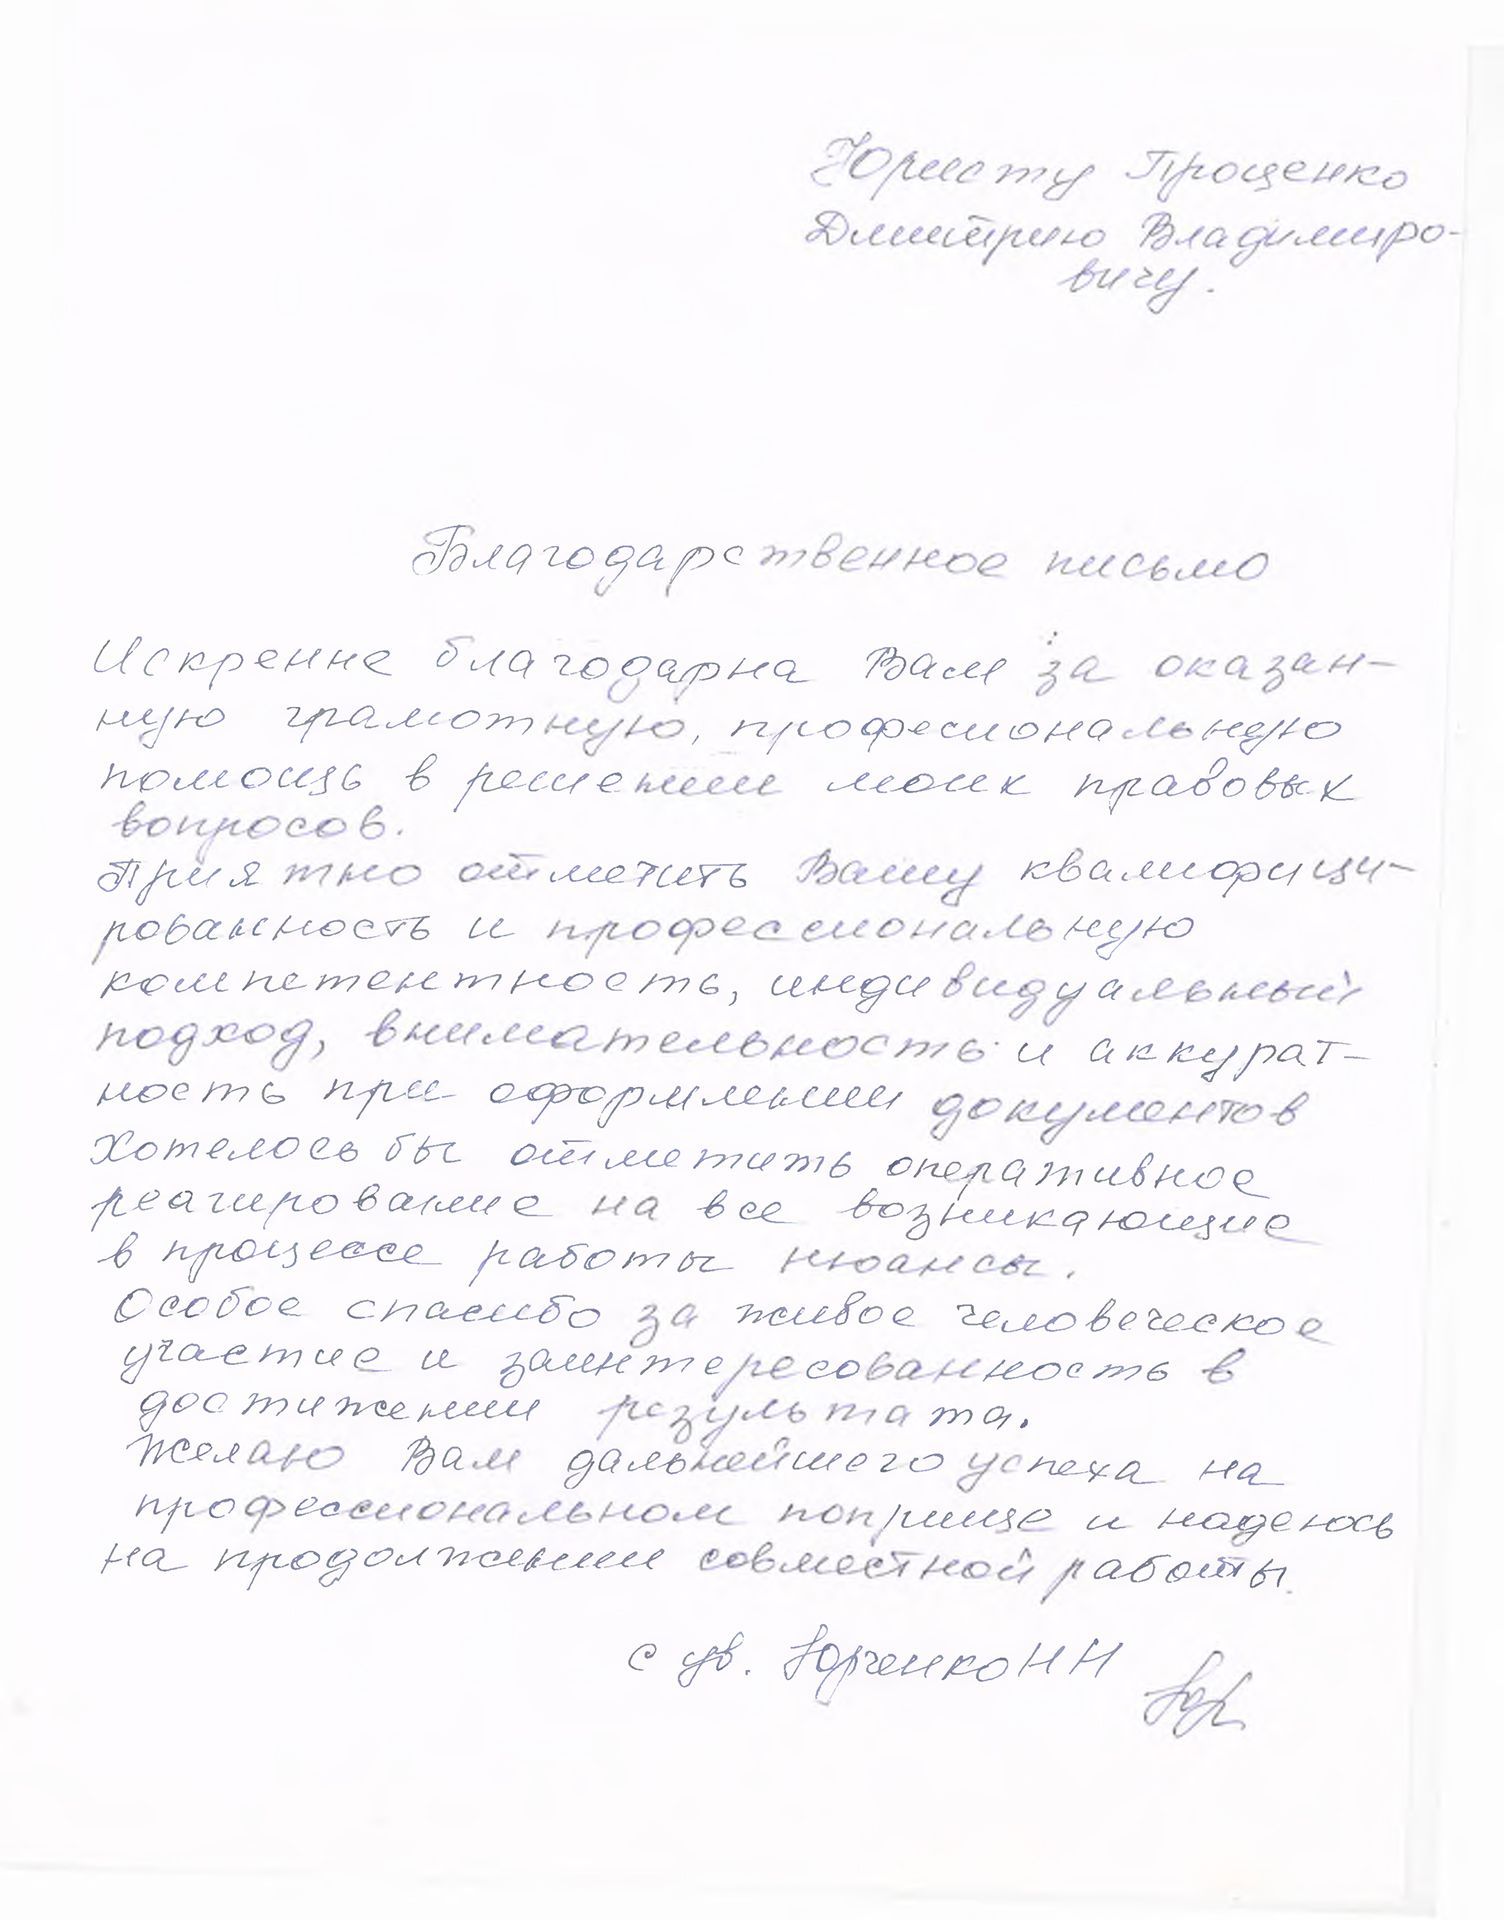 Юристу Проценко
Дмитрию Владимиро-
вичу.
Благодарственное письмо
Искренне благодарна Вам за оказан-
ную грамотную, професиональную
помощь в решении моих правовых
вопросов.
Приятно отметить Вашу квалифици-
рованность и профессиональную
компетентность, индивидуальный
подход, внимательность и аккурат-
ность при оформлении документов
Хотелось бы отметить оперативное
реагирование на все возникающие
в процессе работы нюансы.
Особое спасибо за живое человеческое
участие и заинтересованность в
достижении результата.
Желаю Вам дальнейшего успеха на
профессиональном поприще и надеюсь
на продолжении совместной работы.
с ув. Юрченко Н Н